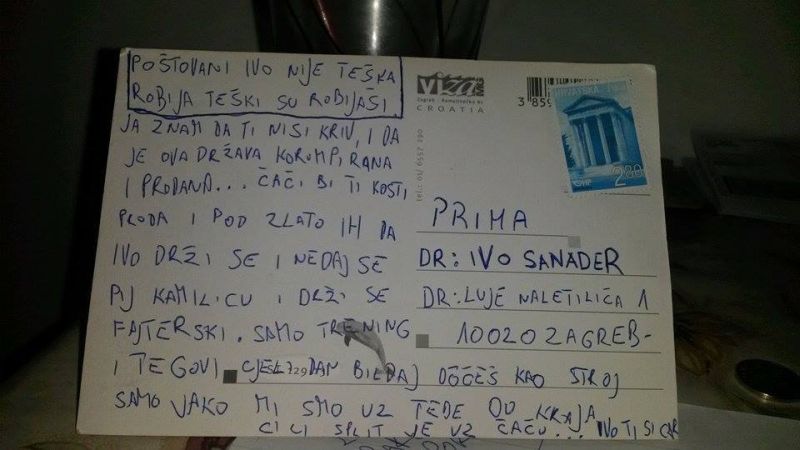 POŠTOVANI IVO NIJE TEŠKA
ROBIJA TEŠKI SU ROBIJAŠI
JA ZNAM DA TI NISI KRIV, I DA
JE OVA DRŽAVA KORUMPIRANA
I PRODANA... ČAČI BI TI KOSTI
PRODA I POD ZLATO IH DA
IVO DRŽI SE I NEDAJ SE
PIJ KAMILICU I DRŽI SE
FAJTERSKI. SAMO TRENING
I TEGOVI CJELI DAN BILDAJ DOĆEŠ KAO STROJ
SAMO JAKO MI SMO UZ TEBE DO KRAJA
CILI SPLIT JE UZ ČAĆU... IVO TI SI CAR
viza
Zagreb - Remetinečka
CROATIA
3 859
HRVATSKA
2.80
PRIMA
DR: IVO SANADER
DR: LUJE NALETILIĆA 1
10020 ZAGREB-